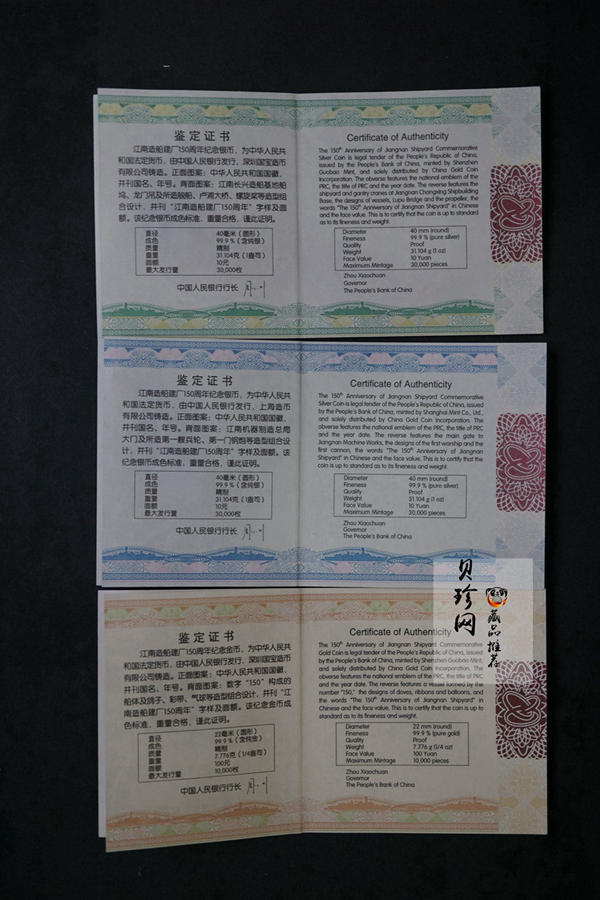 鉴定证书
江南造船建厂150周年纪念银币，为中华人民共
和国法定货币，由中国人民银行发行，深圳国宝造币
有限公司铸造。正面图案：中华人民共和国国徽，
并刊国名、年号。背面图案：江南长兴造船基地船
坞、龙门吊及所造舰船、卢浦大桥、螺旋桨等造型组
合设计，并刊“江南造船建厂150周年”字样及面
额。该纪念银币成色标准，重量合格，谨此证明。
直径 40毫米（圆形）
成色 99.9％（含纯银）
质量 精制
重量 31.104克（1盎司）
面额 10元
最大发行量 30,000枚
中国人民银行行长
Certificate of Authenticity
The 150th Anniversary of Jiangnan Shipyard Commemorative
Silver Coin is legal tender of the People's Republic of China,
issued by the People's Bank of China, minted by Shenzhen
Guobao Mint, and solely distributed by China Gold Coin
Incorporation. The obverse features the national emblem of the
PRC, the title of PRC and the year date. The reverse features the
shipyard and gantry cranes of Jiangnan Changxing Shipbuilding
Base, the designs of vessels, Lupu Bridge and the propeller, the
words "The 150th Anniversary of Jiangnan Shipyard" in Chinese
and the face value. This is to certify that the coin is up to standard
as to its fineness and weight.
Diameter 40 mm (round)
Fineness 99.9 % (pure silver)
Quality Proof
Weight 31.104 g (1 oz)
Face Value 10 Yuan
Maximum Mintage 30,000 pieces
Zhou Xiaochuan
Governor
The People's Bank of China
鉴定证书
江南造船建厂150周年纪念银币，为中华人民共
和国法定货币，由中国人民银行发行，上海造币
有限公司铸造。正面图案：中华人民共和国国徽，
并刊国名、年号。背面图案：江南机器制造总局
大门及所造第一艘兵轮、第一门钢炮等造型组合设
计，并刊“江南造船建厂150周年”字样及面额。该
纪念银币成色标准，重量合格，谨此证明。
直径 40毫米（圆形）
成色 99.9％（含纯银）
质量 精制
重量 31.104克（1盎司）
面额 10元
最大发行量 30,000枚
中国人民银行行长
Certificate of Authenticity
The 150th Anniversary of Jiangnan Shipyard Commemorative
Silver Coin is legal tender of the People's Republic of China, issued
by the People's Bank of China, minted by Shanghai Mint Co., Ltd.,
and solely distributed by China Gold Coin Incorporation. The
obverse features the national emblem of the PRC, the title of PRC
and the year date. The reverse features the main gate to
Jiangnan Machine Works, the designs of the first warship and the
first cannon, the words "The 150th Anniversary of Jiangnan
Shipyard" in Chinese and the face value. This is to certify that the
coin is up to standard as to its fineness and weight.
Diameter 40 mm (round)
Fineness 99.9 % (pure silver)
Quality Proof
Weight 31.104 g (1 oz)
Face Value 10 Yuan
Maximum Mintage 30,000 pieces
Zhou Xiaochuan
Governor
The People's Bank of China
贝珍网
藏品推荐
鉴定证书
江南造船建厂150周年纪念金币，为中华人民共
和国法定货币，由中国人民银行发行，深圳国宝造币
有限公司铸造。正面图案：中华人民共和国国徽，
并刊国名、年号。背面图案：数字“150”构成的
船体及鸽子、彩带、气球等造型组合设计，并刊“江
南造船建厂150周年”字样及面额。该纪念金币成
色标准，重量合格，谨此证明。
直径 22毫米（圆形）
成色 99.9％（含纯金）
质量 精制
重量 7.776克（1/4盎司）
面额 100元
最大发行量 10,000枚
中国人民银行行长
Certificate of Authenticity
The 150th Anniversary of Jiangnan Shipyard Commemorative
Gold Coin is legal tender of the People's Republic of China, issued
by the People's Bank of China, minted by Shenzhen Guobao Mint,
and solely distributed by China Gold Coin Incorporation. The
obverse features the national emblem of the PRC, the title of PRC
and the year date. The reverse features a vessel formed by the
number "150," the designs of doves, ribbons and balloons, and
the words "The 150th Anniversary of Jiangnan Shipyard" in
Chinese and the face value. This is to certify that the coin is up to
standard as to its fineness and weight.
Diameter 22 mm (round)
Fineness 99.9 % (pure gold)
Quality Proof
Weight 7.776 g (1/4 oz)
Face Value 100 Yuan
Maximum Mintage 10,000 pieces
Zhou Xiaochuan
Governor
The People's Bank of China